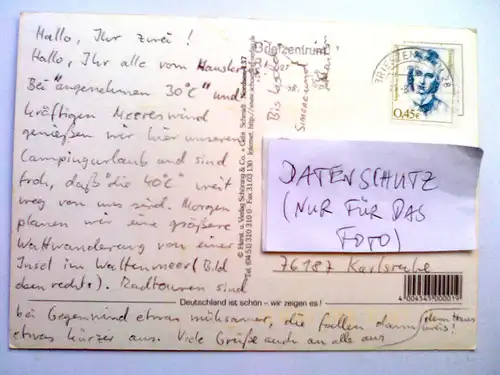 Hallo, Ihr zwei!
Hallo, Ihr alle vom
Bei "angenehmen 30°C" und
kräftigen Meereswind
genießen wir hier unseren
Campingurlaub und sind
froh, daß "die 40°C" weit
weg von uns sind. Morgen
planen wir eine größere
Wattwanderung von einer
Insel im Wattenmeer (Bild
oben rechts). Radtouren sind
bei Gegenwind etwas mühsamer, die fallen dann
etwas kürzer aus. Viele Grüße auch an alle aus
Bis
Briefzentrum
0,45€
DATENSCHUTZ
(NUR FÜR DAS
FOTO)
76187 Karlsruhe
4 004545 000019
Deutschland ist schön – wir zeigen es!